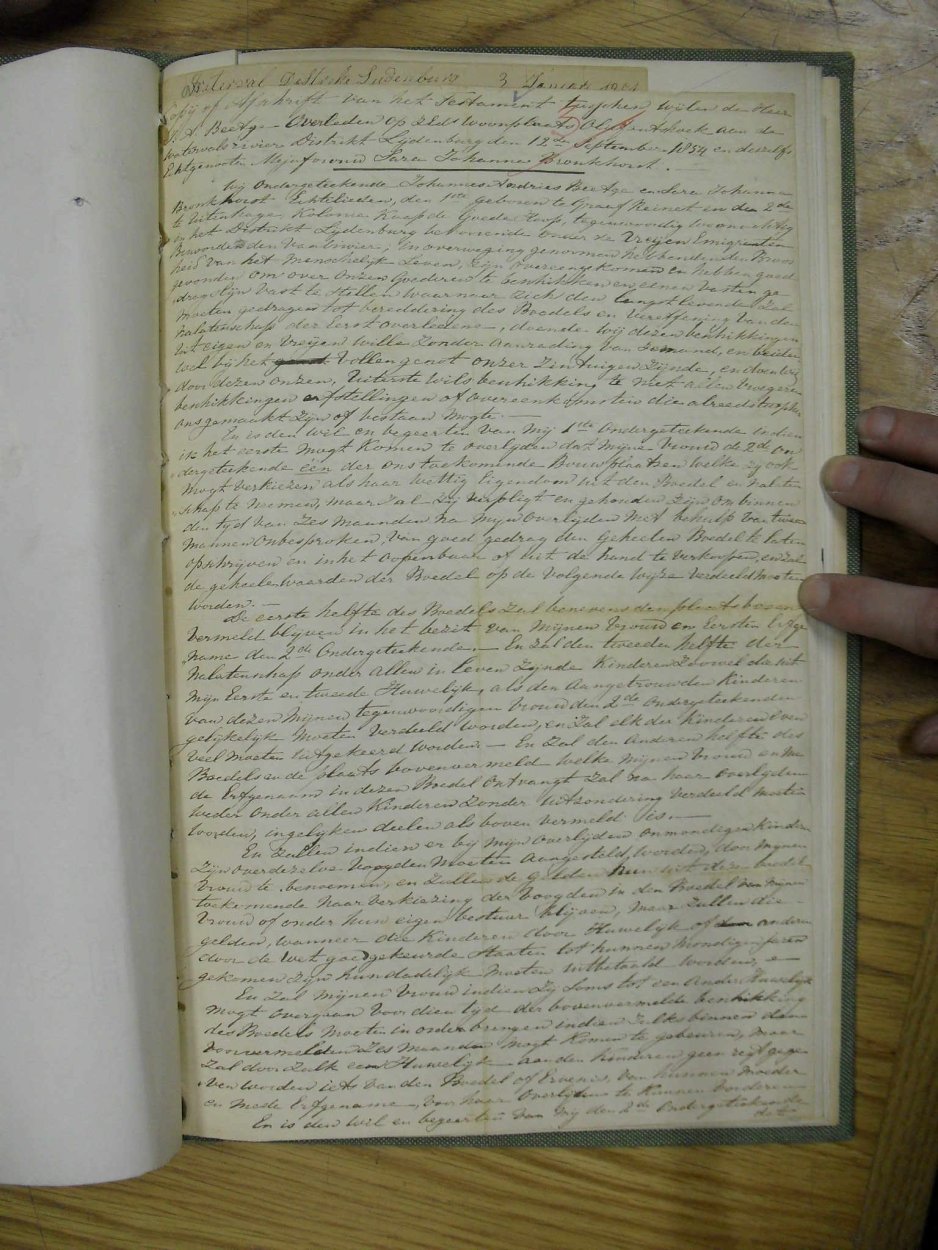 Waterval Distrikt Lydenburg 3 Januarij
Copij of Afschrift van het Testament wijlen den Heer
J. A. Beetge Overleden op zeld woonplaats Olifantshoek aan de
Watervals rivier Distrikt Lydenburg den 12de September 1854 en deszelfs
Echtgenoote Mejufvrouw Sara Johanna Bronkhorst.
Wij Ondergeteekende Johannes Andries Beetge en Sara Johanna
Bronkhorst Echtelieden, den 1ste geboren te Graaf Reinet en den 2de
te Uitenhage, Kolonie Kaap de Goede Hoop, tegenwoordig woonachtig
in het Distrikt Lydenburg behoorende onder de Vreijen Emigranten
Bewoonden van hier; In overweging genomen hebbende den Broos
heid van het Menschelijk Leven, zijn overeengekomen en hebben goed
gevonden om over onzen Goederen te beschikken en eenen vasten ge
dragslijn vast te stellen waarnaar zich den langstlevende zal
moeten gedragen tot bereddering des Boedels en vereffening van den
Nalatenschap der Eerst overledene, doende wij dezen beschikkingen
uit eigen en vreijen wille zonder aanrading van Iemand, en beiden
wel bij het vollen genot onzer Zintuigen Zijnde, en doen
door dezen onzen, Uiterste wils beschikking te niet allen vroegere
beschikkingen of stellingen of overeenkomsten die alreeds
ons gemaakt zijn of bestaan mogte.—
En is den wil en begeerten van Mij 1ste Ondergeteekende indien
ik het eerste mogt komen te overlyden dat mijne vrouw de 2de on
dergeteekende één der ons toekomende Bouwplaatsen welke zij ook
mogt verkiezen als haar wettig Eigendom uit den Boedel en nalaten
schap te nemen, maar zal zij verpligt en gehouden zijn om binnen
den tyd van zes maanden na mijn overlijden met behulp van twee
mannen onbesproken, van goed gedrag den geheelen Boedel te laten
opschrijven en in het openbaar of uit de hand te verkoopen, en zal
de geheele waarden der Boedel op de volgende wijze verdeeld moeten
worden.—
De eerste helfte des Boedels zal benevens den plaats boven
vermeld blijven in het bezit van mijnen vrouw en Eersten Erfge
name den 2de Ondergeteekende.— En zal den tweeden helfte der
Nalatenschap onder allen in leven zijnde Kinderen zoowel die uit
mijn Eerste en tweede Huwelijk, als den Aangetrouwden Kinderen
van dezen mijnen tegenwoordigen vrouw den 2de Ondergeteekenden
gelijkelijk moeten verdeeld worden, en zal elk der Kinderen even
veel moeten uitgekeerd worden.— En zal den Anderen helfte des
Boedels en de plaats bovenvermeld welke mijnen vrouw en Me
de Erfgenaam in dezen Boedel ontvangt zal na haar overlijden
weder onder allen Kinderen zonder uitzondering verdeeld moeten
worden, in gelyken deelen als boven vermeld is.—
En zullen indien er bij mijn overlijden onmondigen kinderen
zijn over dezelve voogden moeten aangesteld, worden, door mijnen
vrouw te benoemen, en zullen de gelden hun uit deze boedel
toekomende naar verkiezing der voogden in den Boedel van mijnen
vrouw of onder hun eigen bestuur blijven, maar zullen die
gelden, wanneer die Kinderen door Huwelijk of anderen
door de wet goedgekeurde Staaten tot hunnen mondigen jaren
gekomen zijn hun dadelijk moeten uitbetaald worden,
En zal mijnen vrouw indien zij soms tot een ander Huwelijk
mogt overgaan voor dien tyd der bovenvermelde beschikking
des Boedels moeten in order brengen indien zulks binnen den
voorvermelden zes maanden mogt komen te gebeuren, maar
zal door zulk een Huwelijk aan den kinderen geen regt gege
ven worden iets van den Boedel of Ervenis, van hunnen moeder
en Mede Erfgename, voor haar overlijden te kunnen vorderen
En is den wil en begeerten van Mij den 2de Ondergeteekende
dat